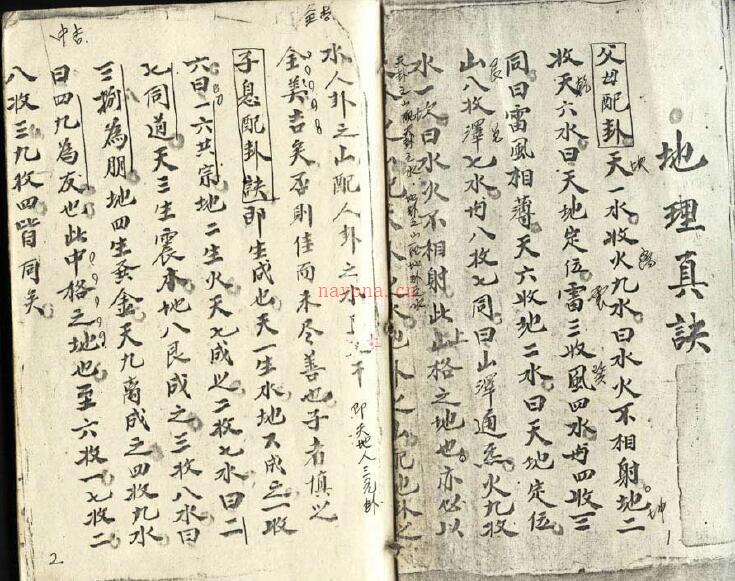 地理真訣
父母配卦 天一水收火九水曰水火不相射地二
收天六水曰天地定位雷三收風四水与四收三
同曰雷風相薄天六收地二水曰天地定位
山八收澤七水与八收七同曰山澤通炁火九收
水一水曰水火不相射此上格之地也亦必以
1
全吉
水人卦之山配人卦之水
即天地人三元卦
全美吉矣否則佳而未尽善也子者慎之
子息配卦訣 即生成也天一生水地六成之一收
六曰一六共宗地二生火天七成之二收七水曰二
七同道天三生震木地八艮成之三收八水曰
三捌為朋地四生巽金天九離成之四收九水
曰四九為友也此中格之地也至六收一七收二
八收三九收四皆同矣
中吉
2
nayona.cn